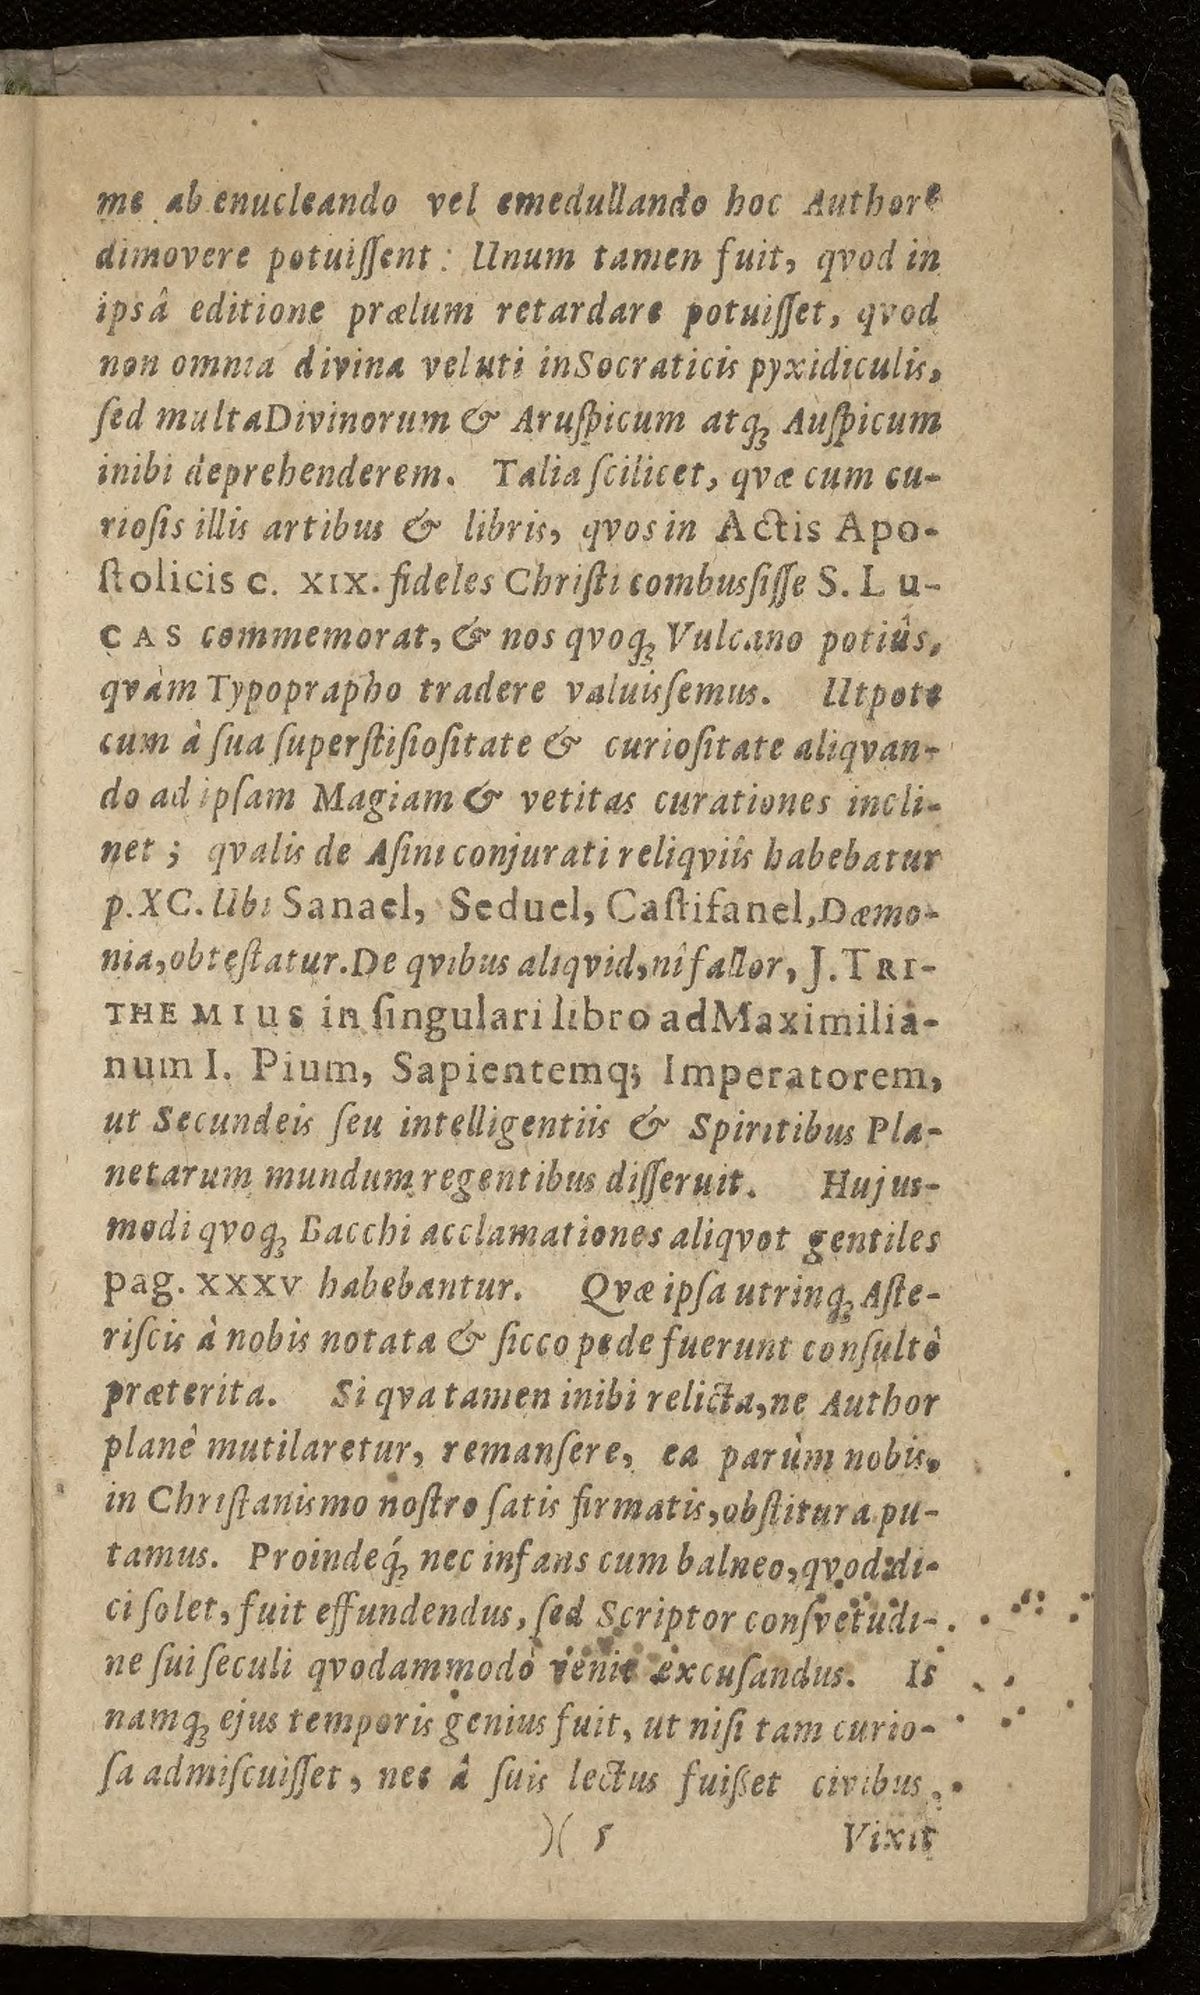 me ab enucleando vel emedullando hoc Authore
dimovere potuiſſent : Unum tamen fuit, qvod in
ipsâ editione prælum retardare potuiſſet, qvod
non omnia divina veluti inSocraticis pyxidiculis,
ſed multaDivinorum & Aruſpicum atq; Auſpicum
inibi deprehenderem. Talia ſcilicet, qvæ cum cu-
rioſis illis artibus & libris, qvos in Actis Apo-
ſtolicis c. XIX. fideles Chriſti combusſiſſe S. Lu-
CAS commemorat, & nos qvoq; Vulcano potiûs,
qvàm Typoprapho tradere valuisſemus. Utpote
cum à ſua ſuperſtiſioſitate & curioſitate aliqvan-
do ad ipſam Magiam & vetitas curationes incli-
net ; qvalis de Aſini conjurati reliqviis habebatur
p. XC. Ubi Sanael, Seduel, Caſtifanel, Dæmo-
nia, obteſtatur. De qvibus aliqvid, nî fallor, J. TRI-
THEMIUS in ſingulari libro ad Maximilia-
num I. Pium, Sapientemq; Imperatorem,
ut Secundeis ſeu intelligentiis & Spiritibus Pla-
netarum mundum regentibus diſſeruit. Hujus-
modi qvoq; Bacchi acclamationes aliqvot gentiles
pag. XXXV habebantur. Qvæ ipſa utrinq; Aſte-
riſcis à nobis notata & ſicco pede fuerunt conſultò
præterita. Si qva tamen inibi relicta, ne Author
planê mutilaretur, remanſere, ea parùm nobis,
in Chriſtanismo noſtro ſatis firmatis, obſtitura pu-
tamus. Proindeq́; nec infans cum balneo, qvod di-
ci ſolet, fuit effundendus, ſed Scriptor conſvetudi-
ne ſui ſeculi qvodammodò venit excuſandus. Is
namq; ejus temporis genius fuit, ut niſi tam curio-
ſa admiſcuiſſet, nec â ſuis lectus fuiſſet civibus,
)( 5 Vixit